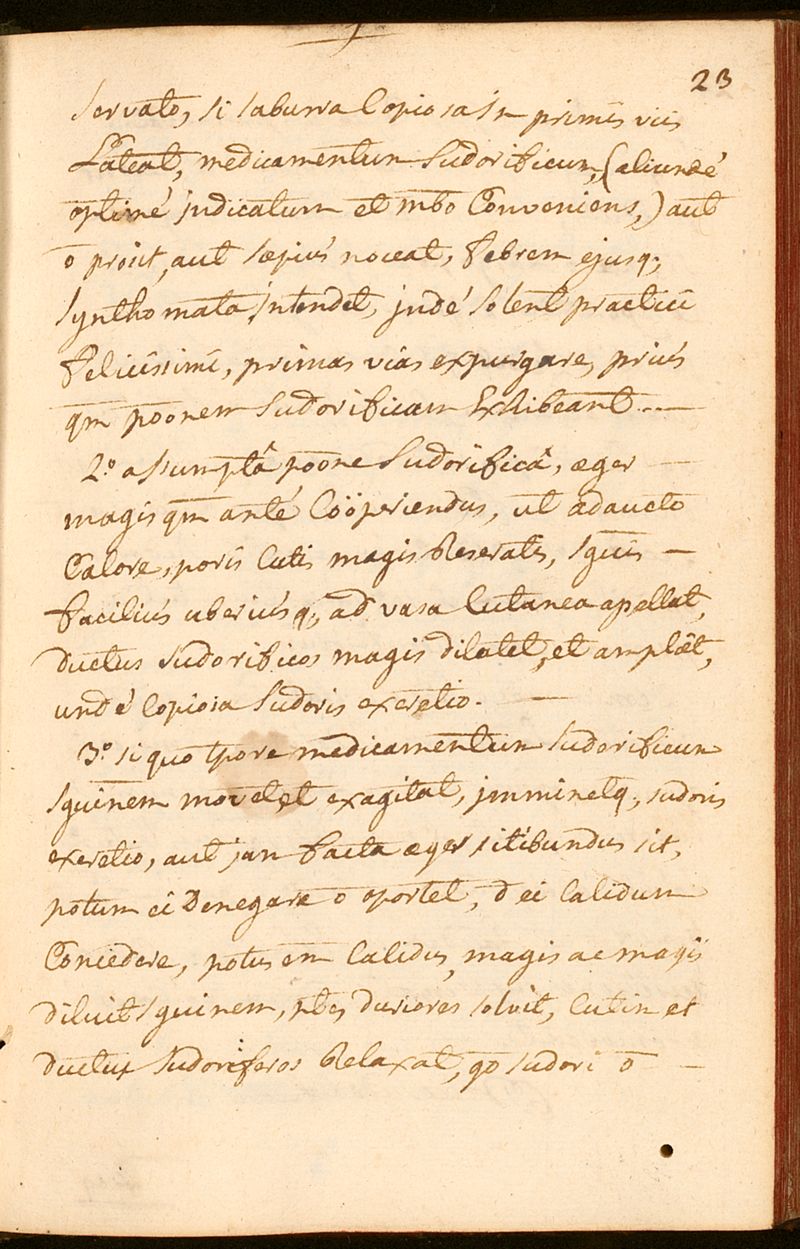 23
servato, si saburra Copiosa in primis viis
Lateat, medicamentum Sudorificum, (aliundé
optimé judicatum et mbo Conveniens,) aut
o prosit, aut sæpius noceat, Febrem ejusq;
Synthomata intendet, jndé Solent practici
Felicissimi, primas vias expurgare, priús
qm poonem Sudorificam Exhibeant. —
2.º assumptâ poone Sudorificâ, æger —
magis qm anté Coöperiendus, ut adaucto
Calore, poris Cutis magis Reseratis, sguis —
facilius uberiusq; ad vasa Cutanea apellat,
ductus Sudorificos magis dilatet, et amplêt,
undé Copiosa Sudoris excretio. —
3.º si quo tpore medicamentum Sudorificum
Sguinem movet, et exagitat, jmminetq; sudoris
excretio, aut jan facta æger sitibundus sit,
potum ei Denegare o oportet, d ei Calidum
Concedere, potus em Calidus, magis ac magis
diluit sguinem, ptes duriores solvit, Cutim et
ductus Sudoriferos Relaxat, go sudori o —